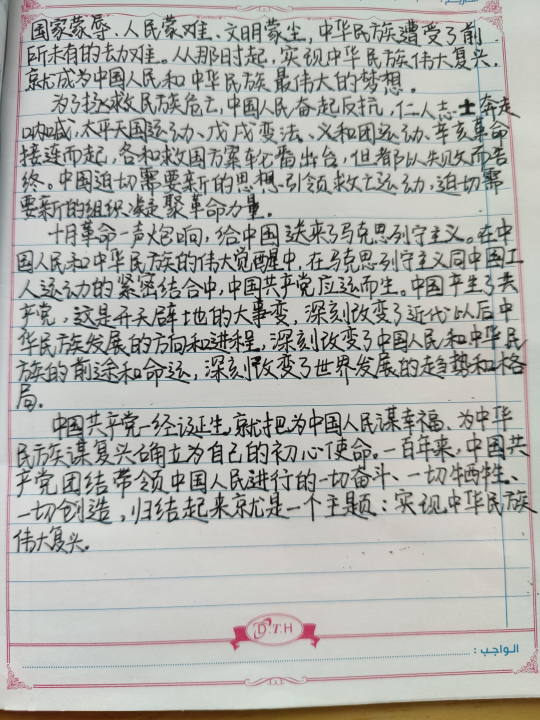 国家蒙辱、人民蒙难、文明蒙尘，中华民族遭受了前
所未有的劫难。从那时起，实现中华民族伟大复兴，
就成为中国人民和中华民族最伟大的梦想。
为了拯救民族危亡，中国人民奋起反抗，仁人志士奔走
呐喊，太平天国运动、戊戌变法、义和团运动、辛亥革命
接连而起，各种救国方案轮番出台，但都以失败而告
终。中国迫切需要新的思想引领救亡运动，迫切需
要新的组织凝聚革命力量。
十月革命一声炮响，给中国送来了马克思列宁主义。在中
国人民和中华民族的伟大觉醒中，在马克思列宁主义同中国工
人运动的紧密结合中，中国共产党应运而生。中国产生了共
产党，这是开天辟地的大事变，深刻改变了近代以后中
华民族发展的方向和进程，深刻改变了中国人民和中华民
族的前途和命运，深刻改变了世界发展的趋势和格
局。
中国共产党一经诞生，就把为中国人民谋幸福、为中华
民族谋复兴确立为自己的初心使命。一百年来，中国共
产党团结带领中国人民进行的一切奋斗、一切牺牲、
一切创造，归结起来就是一个主题：实现中华民族
伟大复兴。
D.T.H
الواجب :